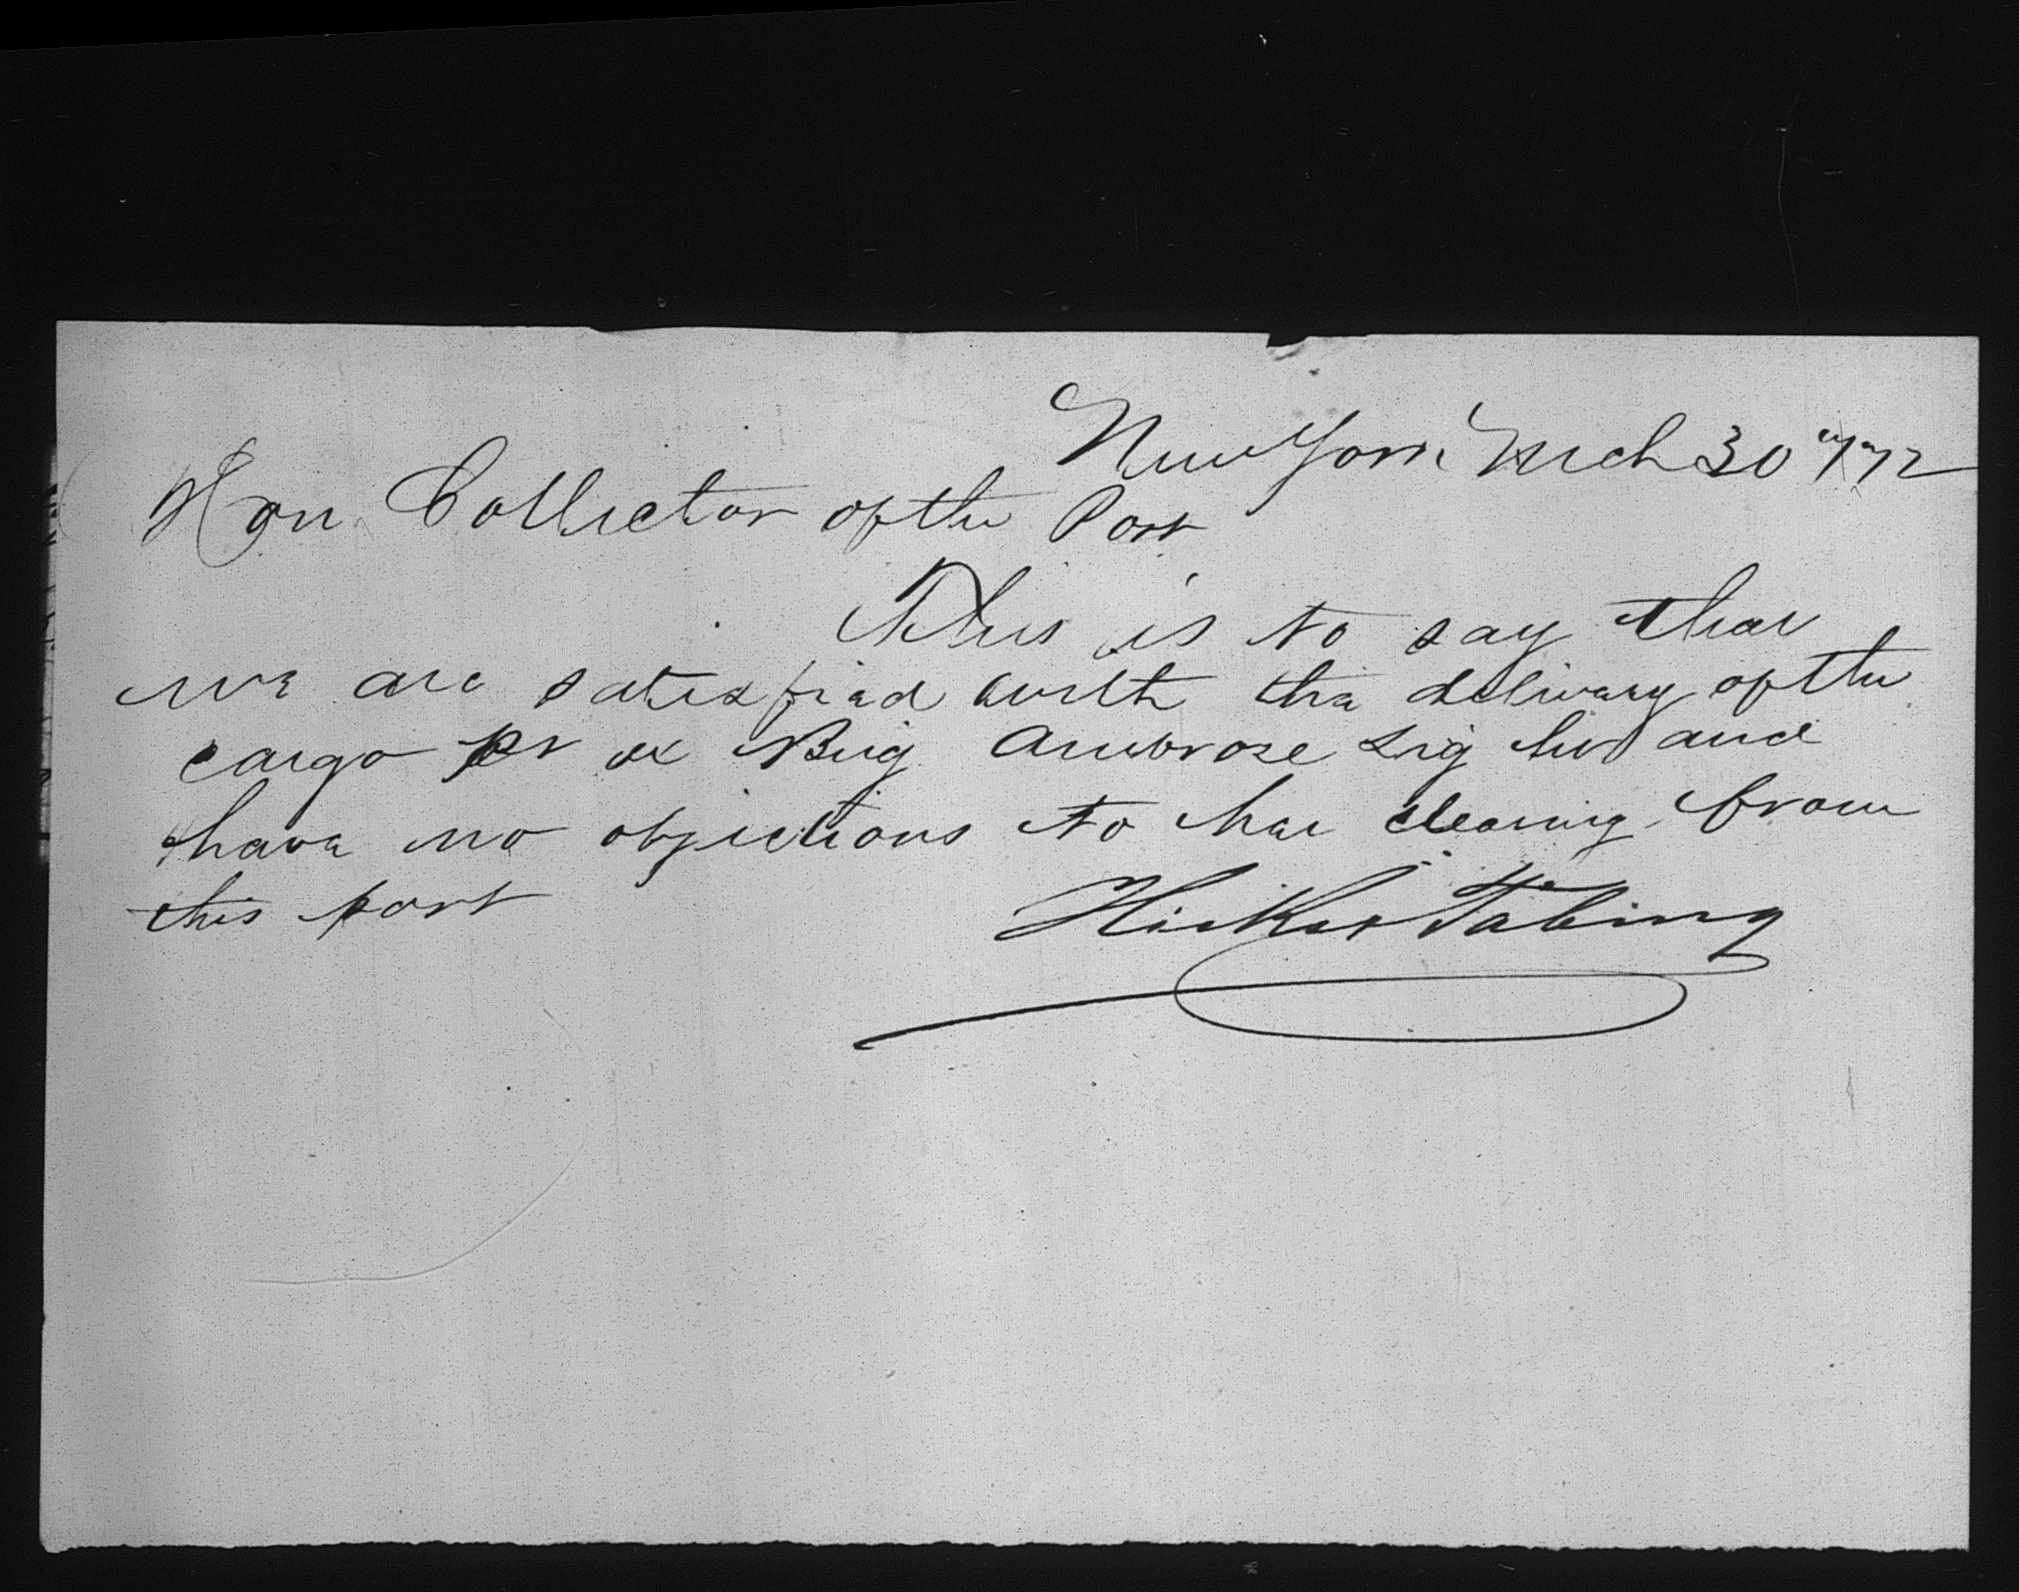 New York Mch 30th 72
Hon Collector of the Port
This is to say that
we are satisfied with the delivery of the
cargo pr ex Brig Ambrose Lig ht and
have no objections to her clearing from
this port
Hicks & Tabing